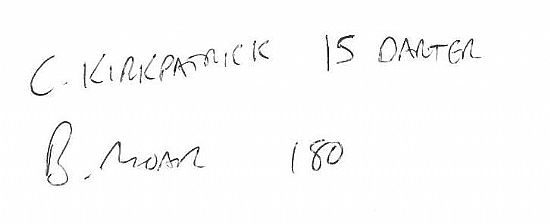 C. KIRKPATRICK 15 DARTER
B. MOAR 180